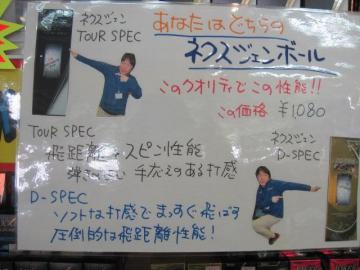 ネクスジェン
TOUR SPEC
あなたはどちらの
ネクスジェンボール
このクオリティでこの性能!!
この価格 ¥1,080
TOUR SPEC
飛距離・スピン性能
手応えのある打感
ネクスジェン
D-SPEC
D-SPEC
ソフトな打感でまっすぐ飛ばす
圧倒的な飛距離性能!